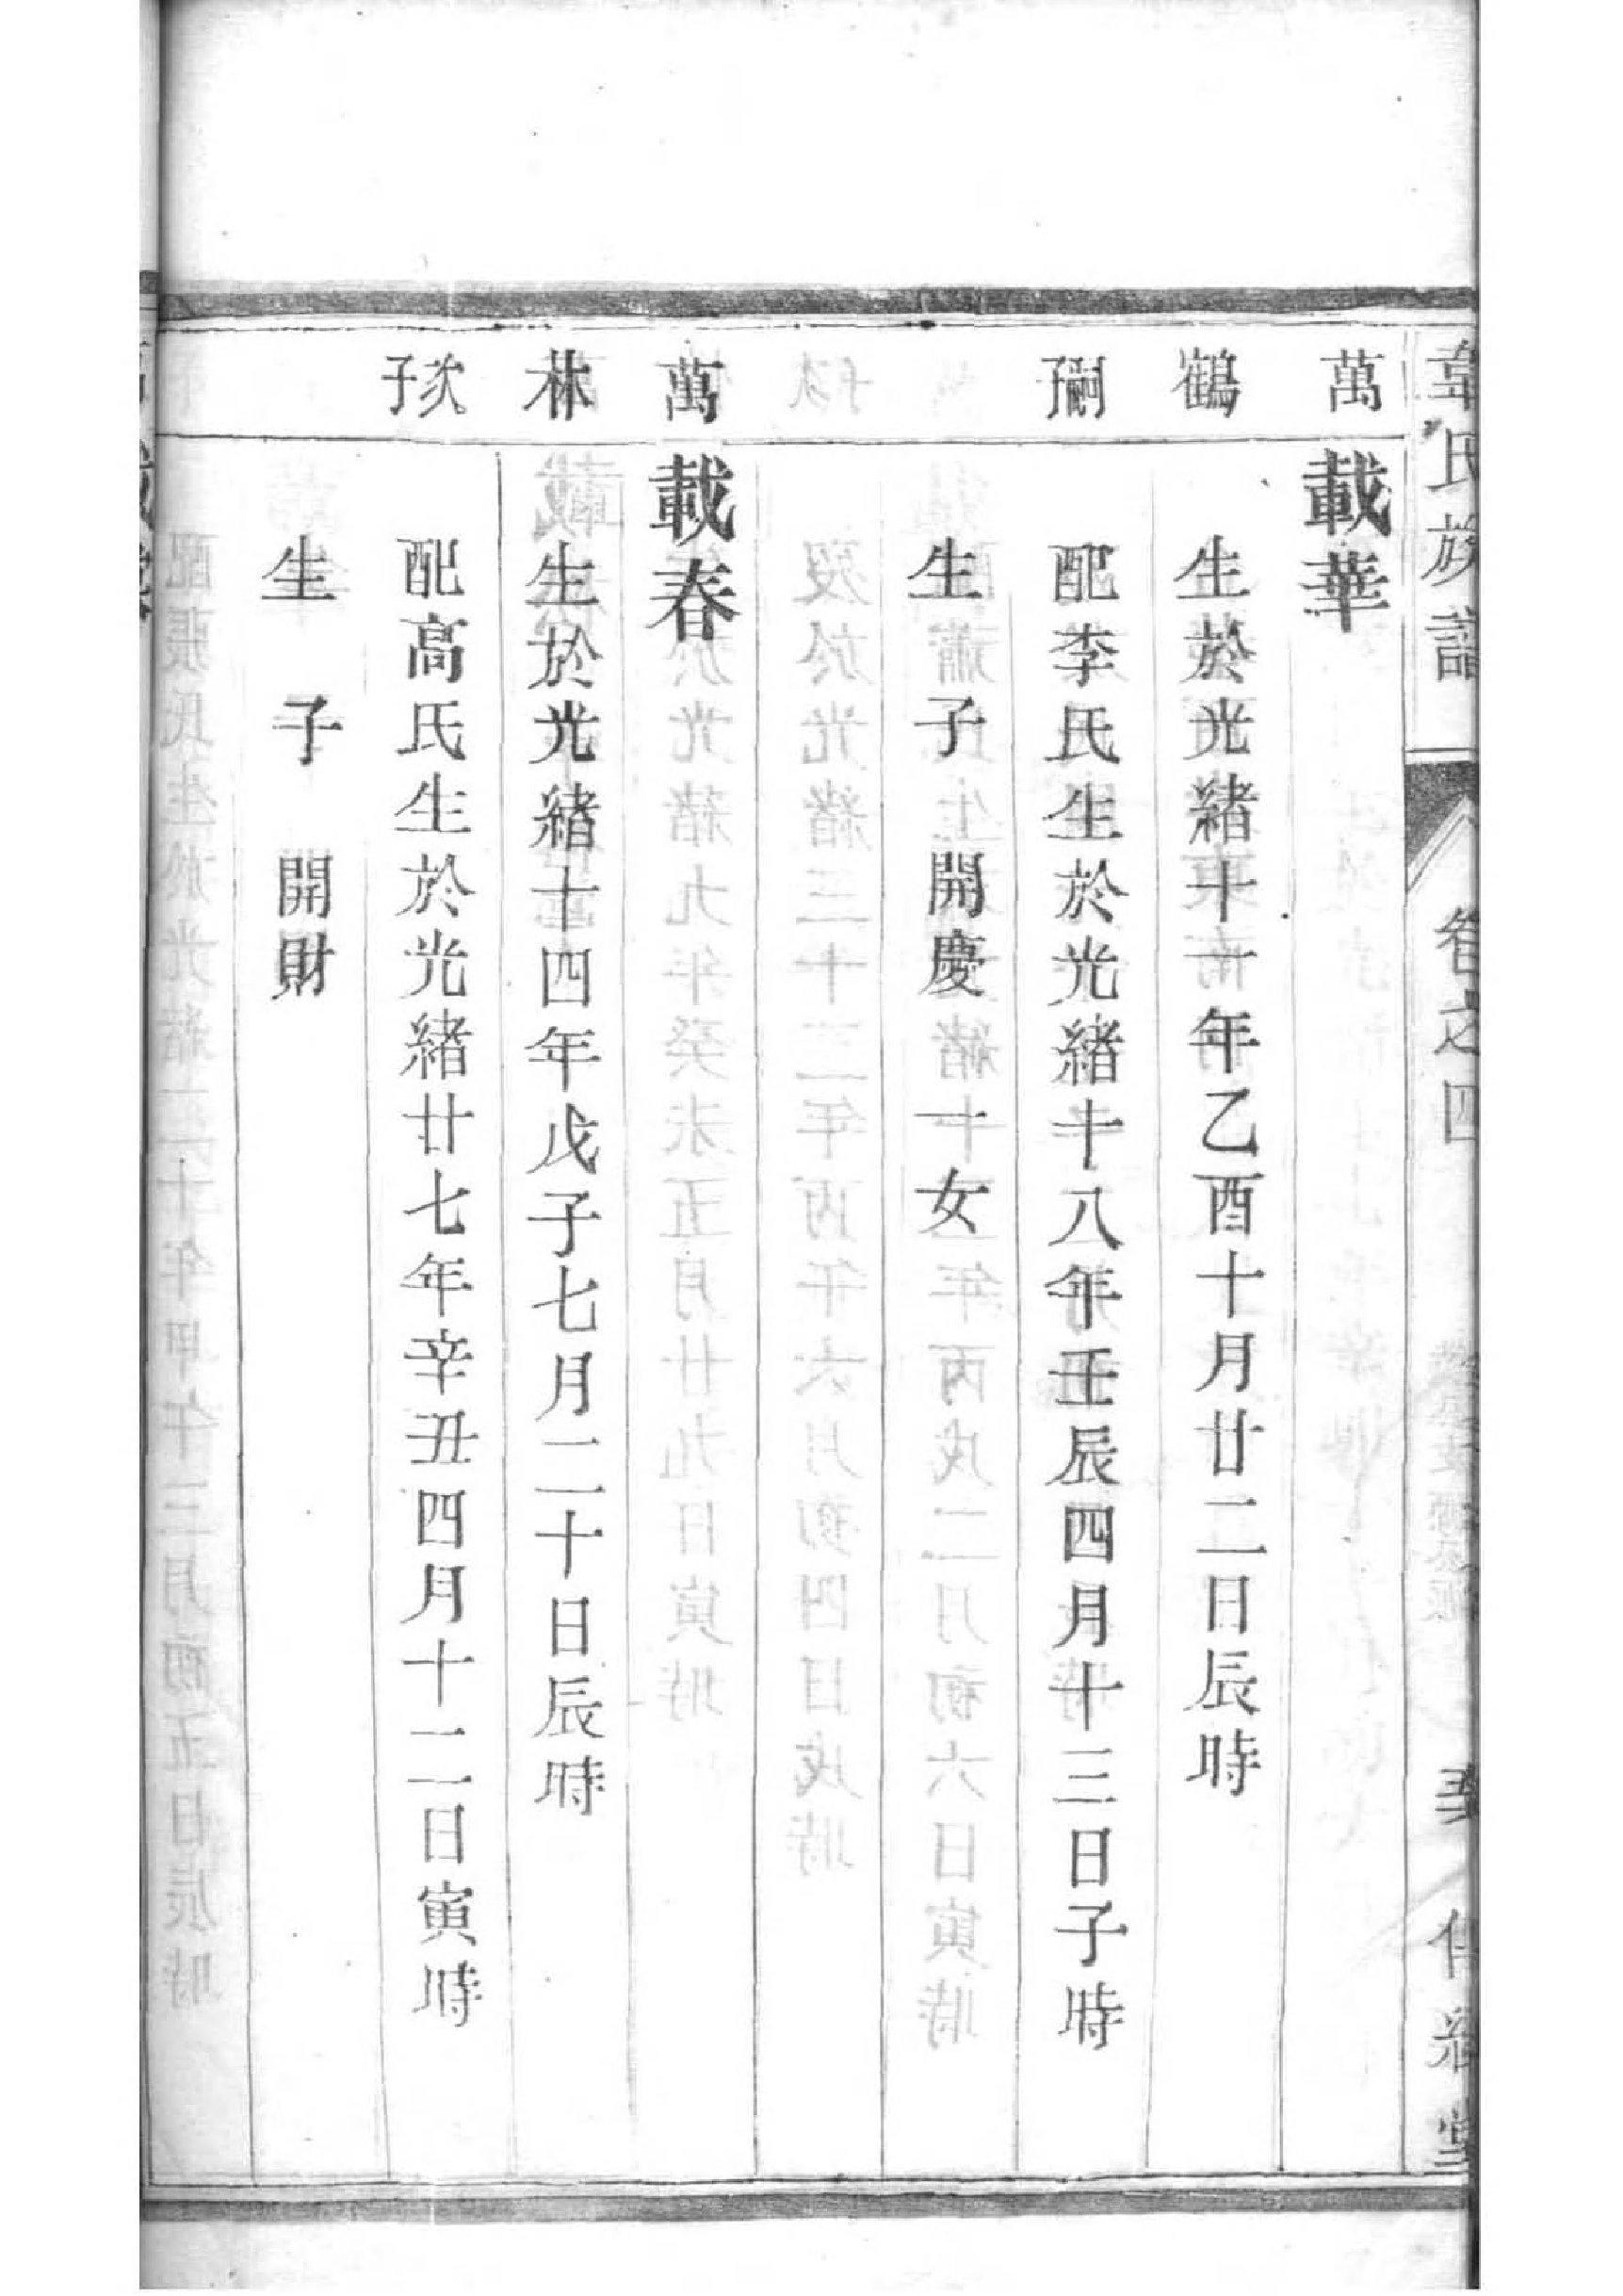 韋氏族譜 卷之四
萬 載華
鶴 生於光緒十一年乙酉十月廿二日辰時
嗣子 配李氏生於光緒十八年壬辰四月十三日子時
生 子 開慶 一女
萬 載春
林 生於光緒十四年戊子七月二十日辰時
次子 配高氏生於光緒廿七年辛丑四月十二日寅時
生 子 開財